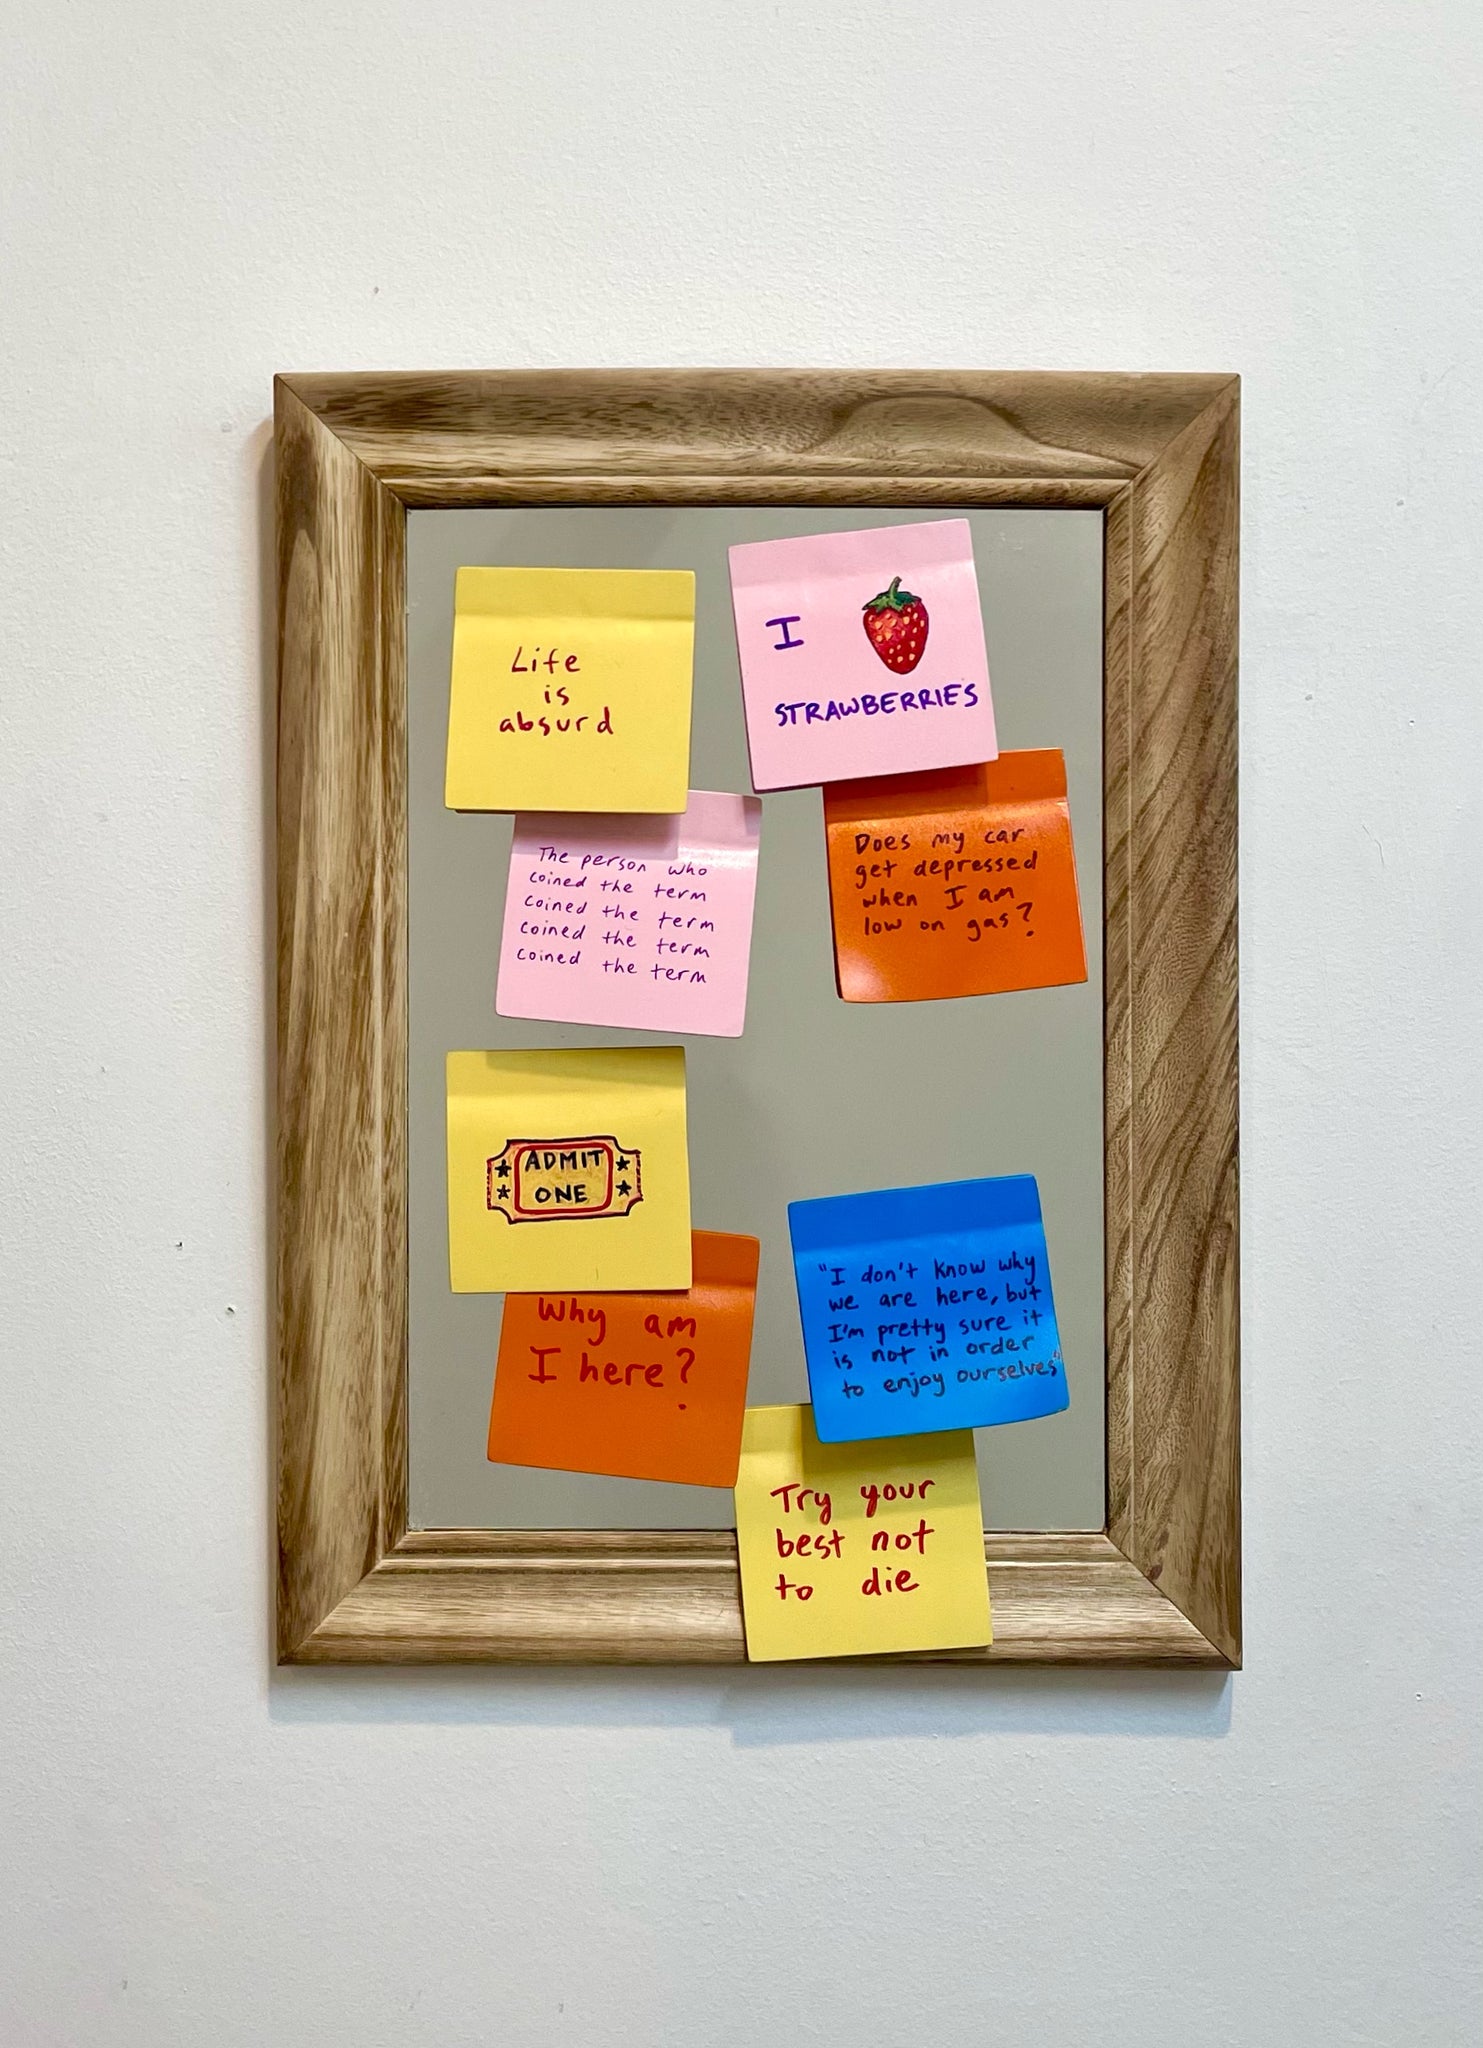 Life
is
absurd
I
STRAWBERRIES
The person who
coined the term
coined the term
coined the term
coined the term
Does my car
get depressed
when I am
low on gas?
ADMIT
ONE
Why am
I here?
"I don't know why
we are here, but
I'm pretty sure it
is not in order
to enjoy ourselves"
Try your
best not
to die